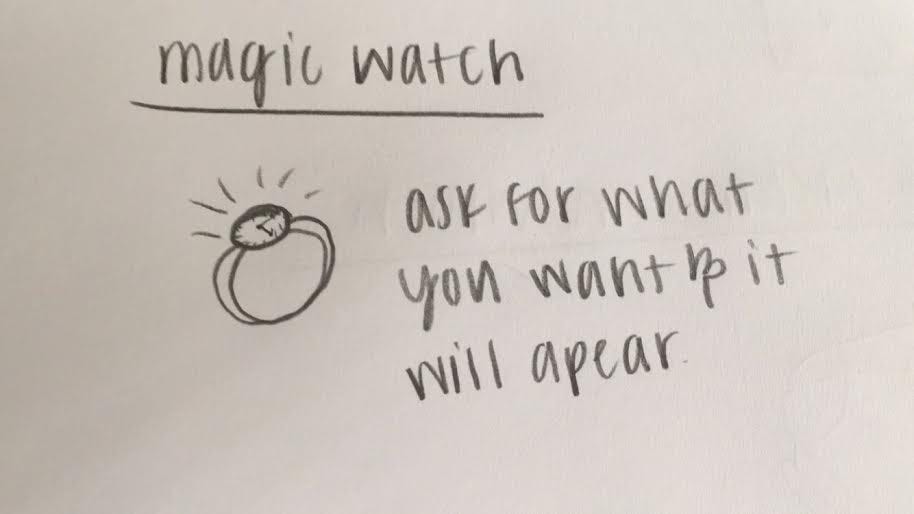 magic watch
ask for what
you want & it
will apear.